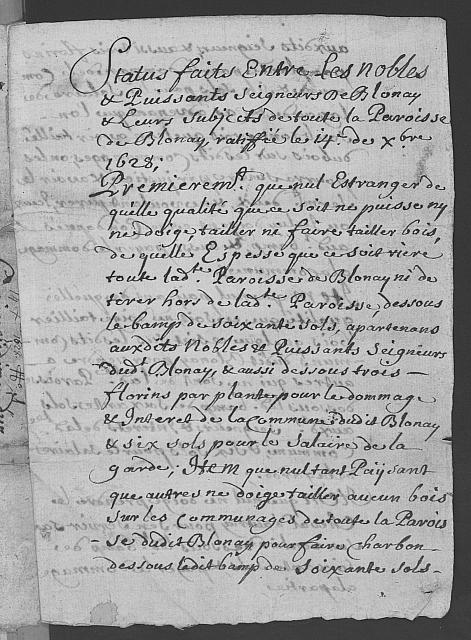 Status faits Entre Les nobles
& Puissants Seigneurs De Blonay
& Leurs subjects de toute la Paroisse
de Blonay, ratiffié le 14.e de xbre
1628;
Premierem.t que nul Estranger de
quelle qualité que ce soit ne puisse ny
ne doige tailler ni faire tailler bois,
de quelle Espesse que ce soit riere
toute lad.te Paroisse de Blonay ni de
tirer hors de lad.te Paroisse, dessous
le bamp de soixante sols, apartenans
auxdits Nobles & Puissants Seigneurs
dud.t Blonay, & aussi dessous trois
florins par plante pour le dommage
& Interet de la commune dudit Blonay
& six sols pour le salaire de la
garde; Item que nul tant Paÿsant
que autres ne doige tailler aucun bois
sur les communages de toute la Parois
-se dudit Blonay pour faire charbon
dessous ledit bamp de soixante sols-